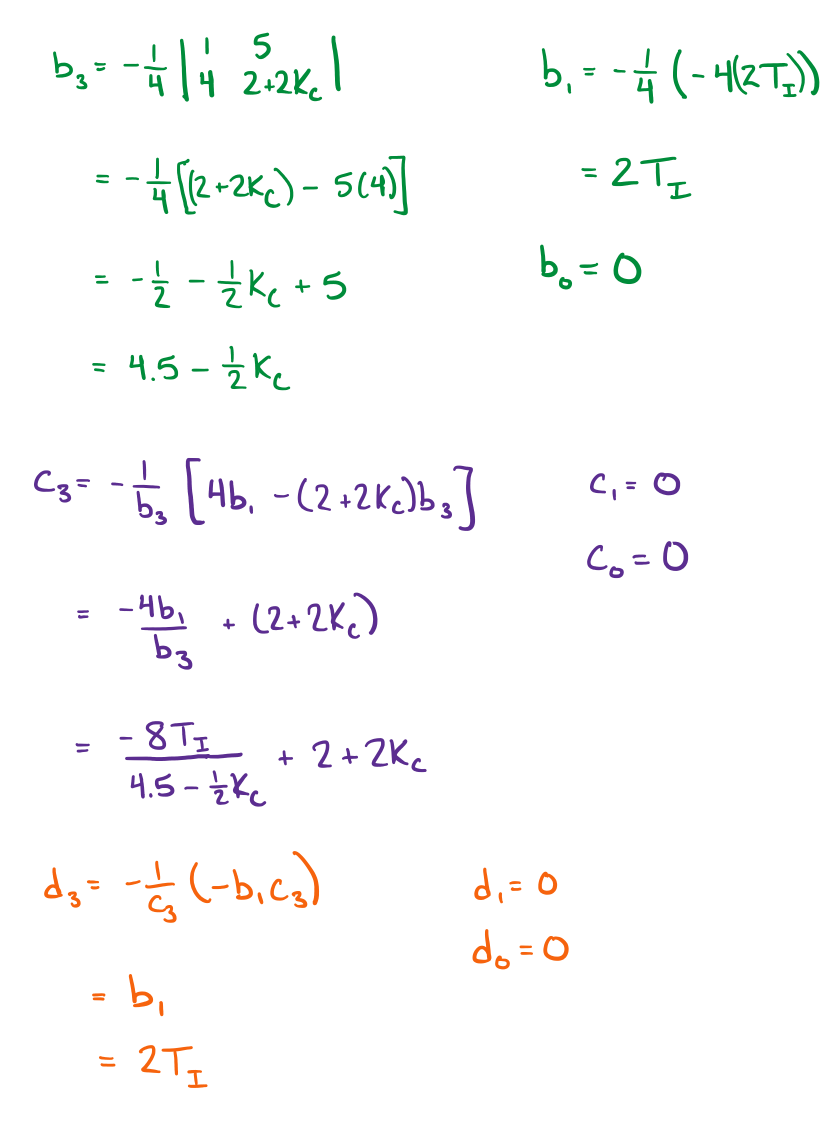 b₃ = -1/4 | 1 5 |
| 4 2+2K_C |
= -1/4 [(2+2K_C) - 5(4)]
= -1/2 - 1/2 K_C + 5
= 4.5 - 1/2 K_C
b₁ = -1/4 (-4(2T_I))
= 2T_I
b₀ = 0
c₃ = -1/b₃ [4b₁ - (2+2K_C)b₃]
= -4b₁/b₃ + (2+2K_C)
= -8T_I/(4.5 - 1/2 K_C) + 2 + 2K_C
c₁ = 0
c₀ = 0
d₃ = -1/c₃ (-b₁c₃)
= b₁
= 2T_I
d₁ = 0
d₀ = 0